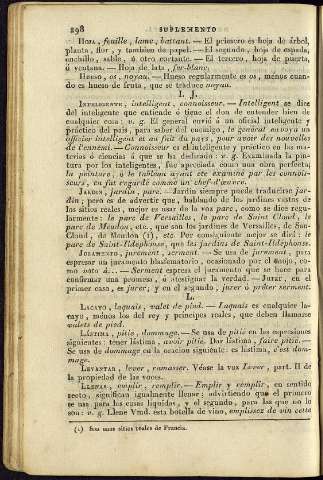 298 SUPLEMENTO
HOJA, feuille, lame, battant. — El primero es hoja de árbol,
planta, flor, y tambien de papel. — El segundo, hoja de espada,
cuchillo, sable, ú otro cortante. — El tercero, hoja de puerta,
ó ventana. — Hoja de lata, fer-blanc.
HUESO, os, noyau. — Hueso regularmente es os, ménos cuan-
do es hueso de fruta, que se traduce noyau.
I. J.
INTELIGENTE, intelligent, connoisseur. — Intelligent se dice
del inteligente que entiende ó tiene el don de entender bien de
cualquier cosa: v. g. El general envió á un oficial inteligente y
práctico del pais, para saber del enemigo, le général envoya un
officier intelligent et au fait du pays, pour avoir des nouvelles
de l'ennemi. — Connoisseur es el inteligente y práctico en las ma-
terias ó ciencias á que se ha dedicado: v. g. Examinada la pin-
tura por los inteligentes, fué apreciada como una obra perfecta,
la peinture, ó le tableau ayant été examiné par les connois-
seurs, en fut regardé comme un chef-d'œuvre.
JARDIN, jardin, parc. — Jardin siempre puede traducirse jar-
din; pero es de advertir que, hablando de los jardines vastos de
los sitios reales, mejor es usar de la voz parc, como se dice regu-
larmente: le parc de Versailles, le parc de Saint Cloud, le
parc de Meudon, etc., que son los jardines de Versalles, de San-
Cloud, de Meudon (1), etc. Por consiguiente mejor se dirá: le
parc de Saint-Ildephonse, que les jardins de Saint-Ildephonse.
JURAMENTO, jurement, serment. — Se usa de jurement, para
expresar un juramento blasfematorio, ocasionado por el enojo, co-
mo voto á... — Serment expresa el juramento que se hace para
confirmar una promesa, ó atestiguar la verdad. — Jurar, en el
primer caso, es jurer; y en el segundo, jurer ó prêter serment.
L.
LACAYO, laquais, valet de pied. — Laquais es cualquier la-
cayo, ménos los del rey y príncipes reales, que deben llamarse
valets de pied.
LÁSTIMA, pitié, dommage. — Se usa de pitié en las expresiones
siguientes: tener lástima, avoir pitié. Dar lástima, faire pitié. —
Se usa de dommage en la oracion siguiente: es lástima, c'est dom-
mage.
LEVANTAR, lever, ramasser. Véase la voz Lever, part. II de
la propiedad de las voces.
LLENAR, emplir, remplir. — Emplir y remplir, en sentido
recto, significan igualmente llenar: advirtiendo que el primero
se usa para las cosas líquidas, y el segundo, para las que no lo
son: v. g. Llene Vmd. esta botella de vino, emplissez de vin cette
(1) Son unos sitios reales de Francia.